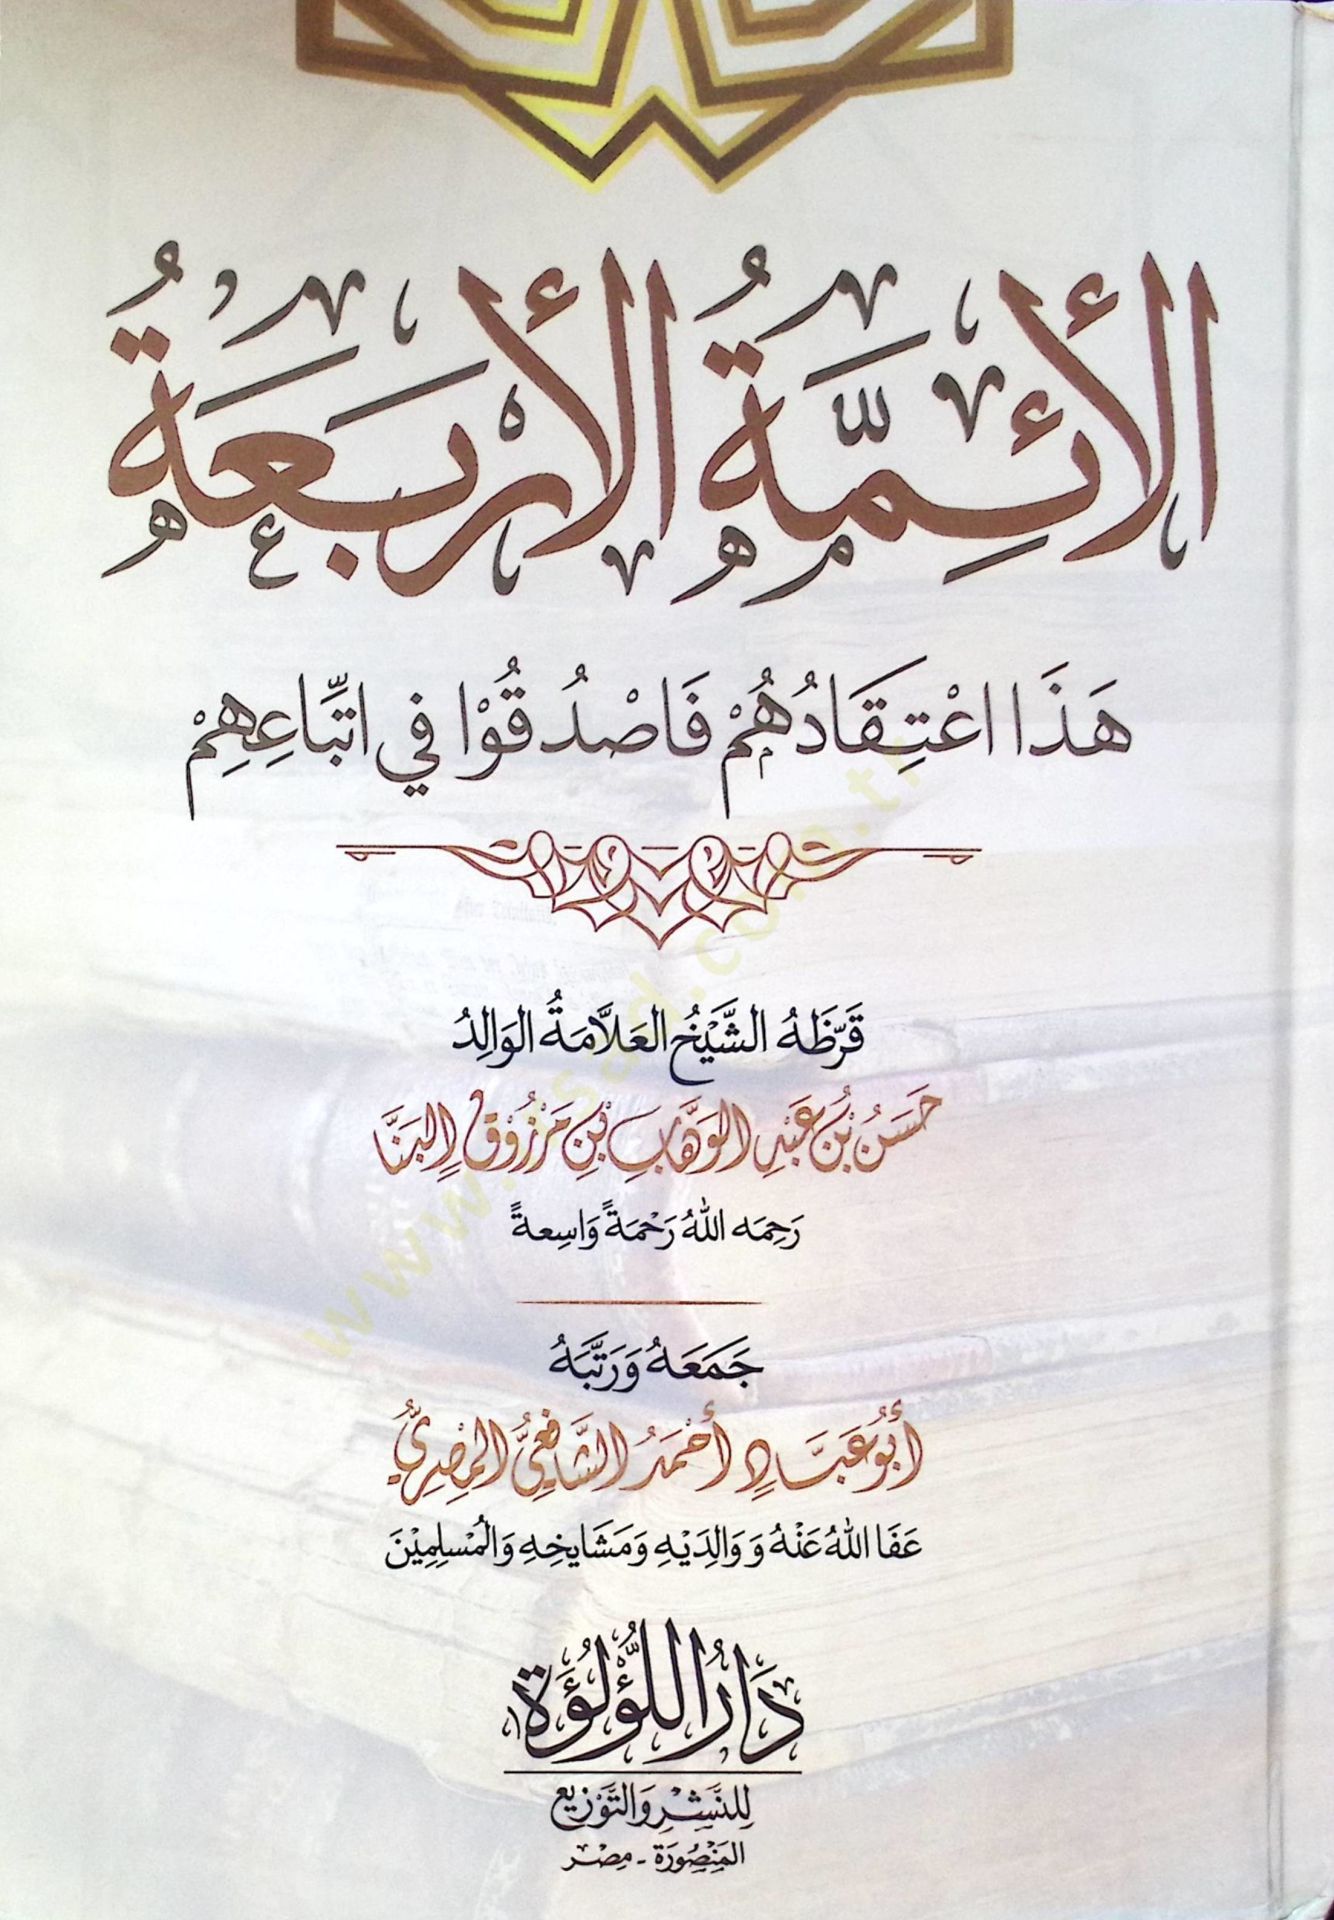 الأَئِمَّةُ الأَرْبَعَةُ
هَذَا اعْتِقَادُهُمْ فَاصْدُقُوْا فِي اتِّبَاعِهِمْ
قَرَّظَهُ الشَّيْخُ العَلَّامَةُ الوَالِدُ
حَسَنُ بْنُ عَبْدِ الوَهَّابِ بْنِ مَرْزُوْقٍ البَنَّا
رَحِمَه اللهُ رَحْمَةً وَاسِعةً
جَمَعَهُ وَرَتَّبَهُ
أَبُو عَبَّادٍ أَحْمَدُ الشَّافِعِيُّ المِصْرِيُّ
عَفَا اللهُ عَنْهُ وَوَالِدَيْهِ وَمَشَايخِهِ وَالمُسْلِمِيْنَ
دَارُ اللُّؤْلُؤَةِ
لِلنَّشْرِ وَالتَّوْزِيعِ
المَنْصُورَة - مِصْر